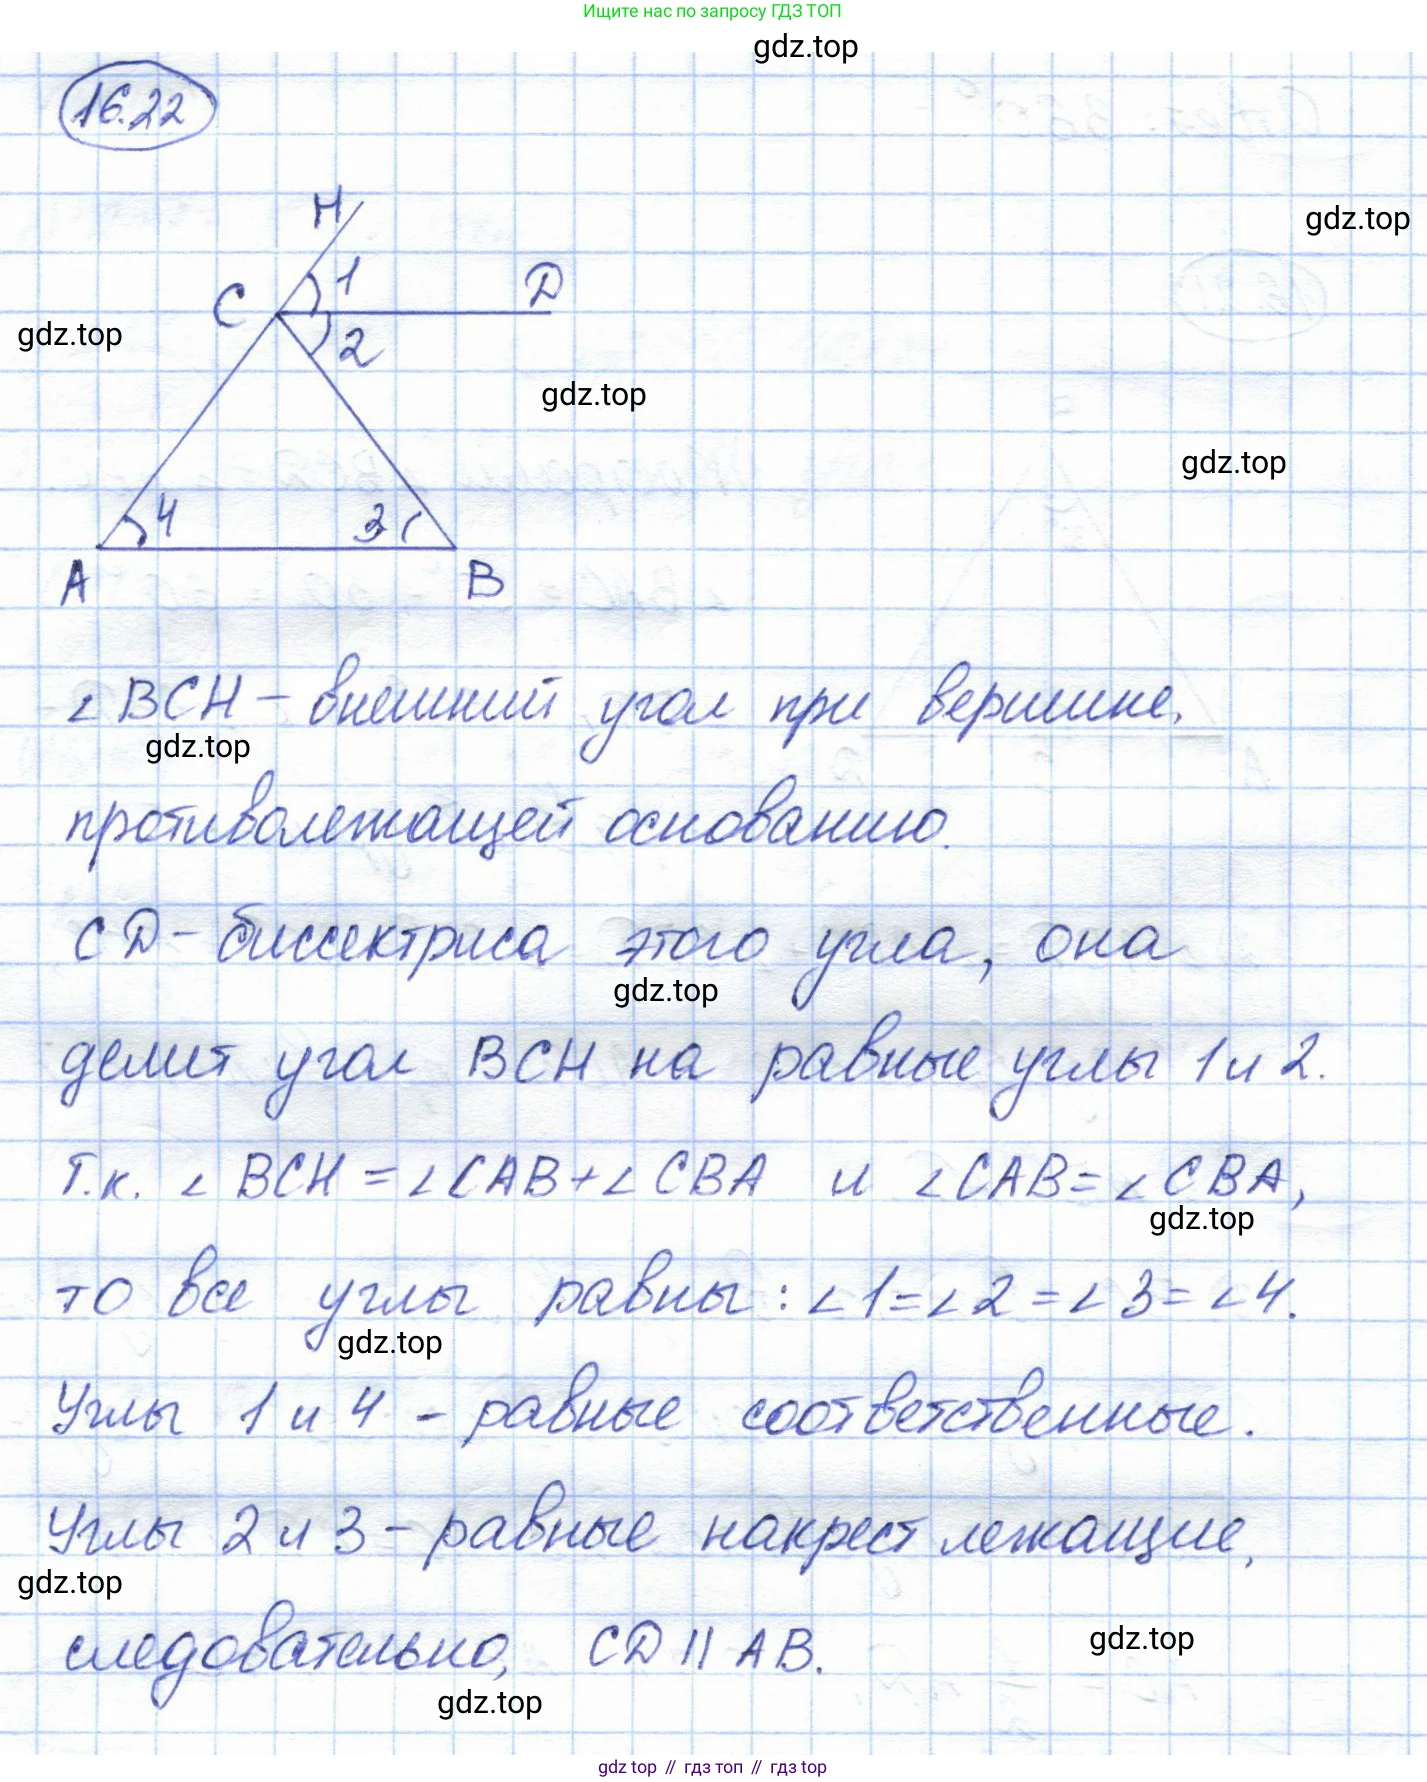 Ищите нас по запросу ГДЗ ТОП
gdz.top
16.22
H
gdz.top
1
D
C
gdz.top
2
gdz.top
gdz.top
4
3
A
B
∠BCH - внешний угол при вершине,
gdz.top
противолежащей основанию.
CD - биссектриса этого угла, она
gdz.top
делит угол BCH на равные углы 1 и 2.
Т.к. ∠BCH = ∠CAB + ∠CBA и ∠CAB = ∠CBA,
gdz.top
то все углы равны: ∠1 = ∠2 = ∠3 = ∠4.
gdz.top
Углы 1 и 4 - равные соответственные.
Углы 2 и 3 - равные накрест лежащие,
gdz.top
следовательно, CD || AB.
gdz.top
gdz.top
gdz top // гдз топ // гдз top